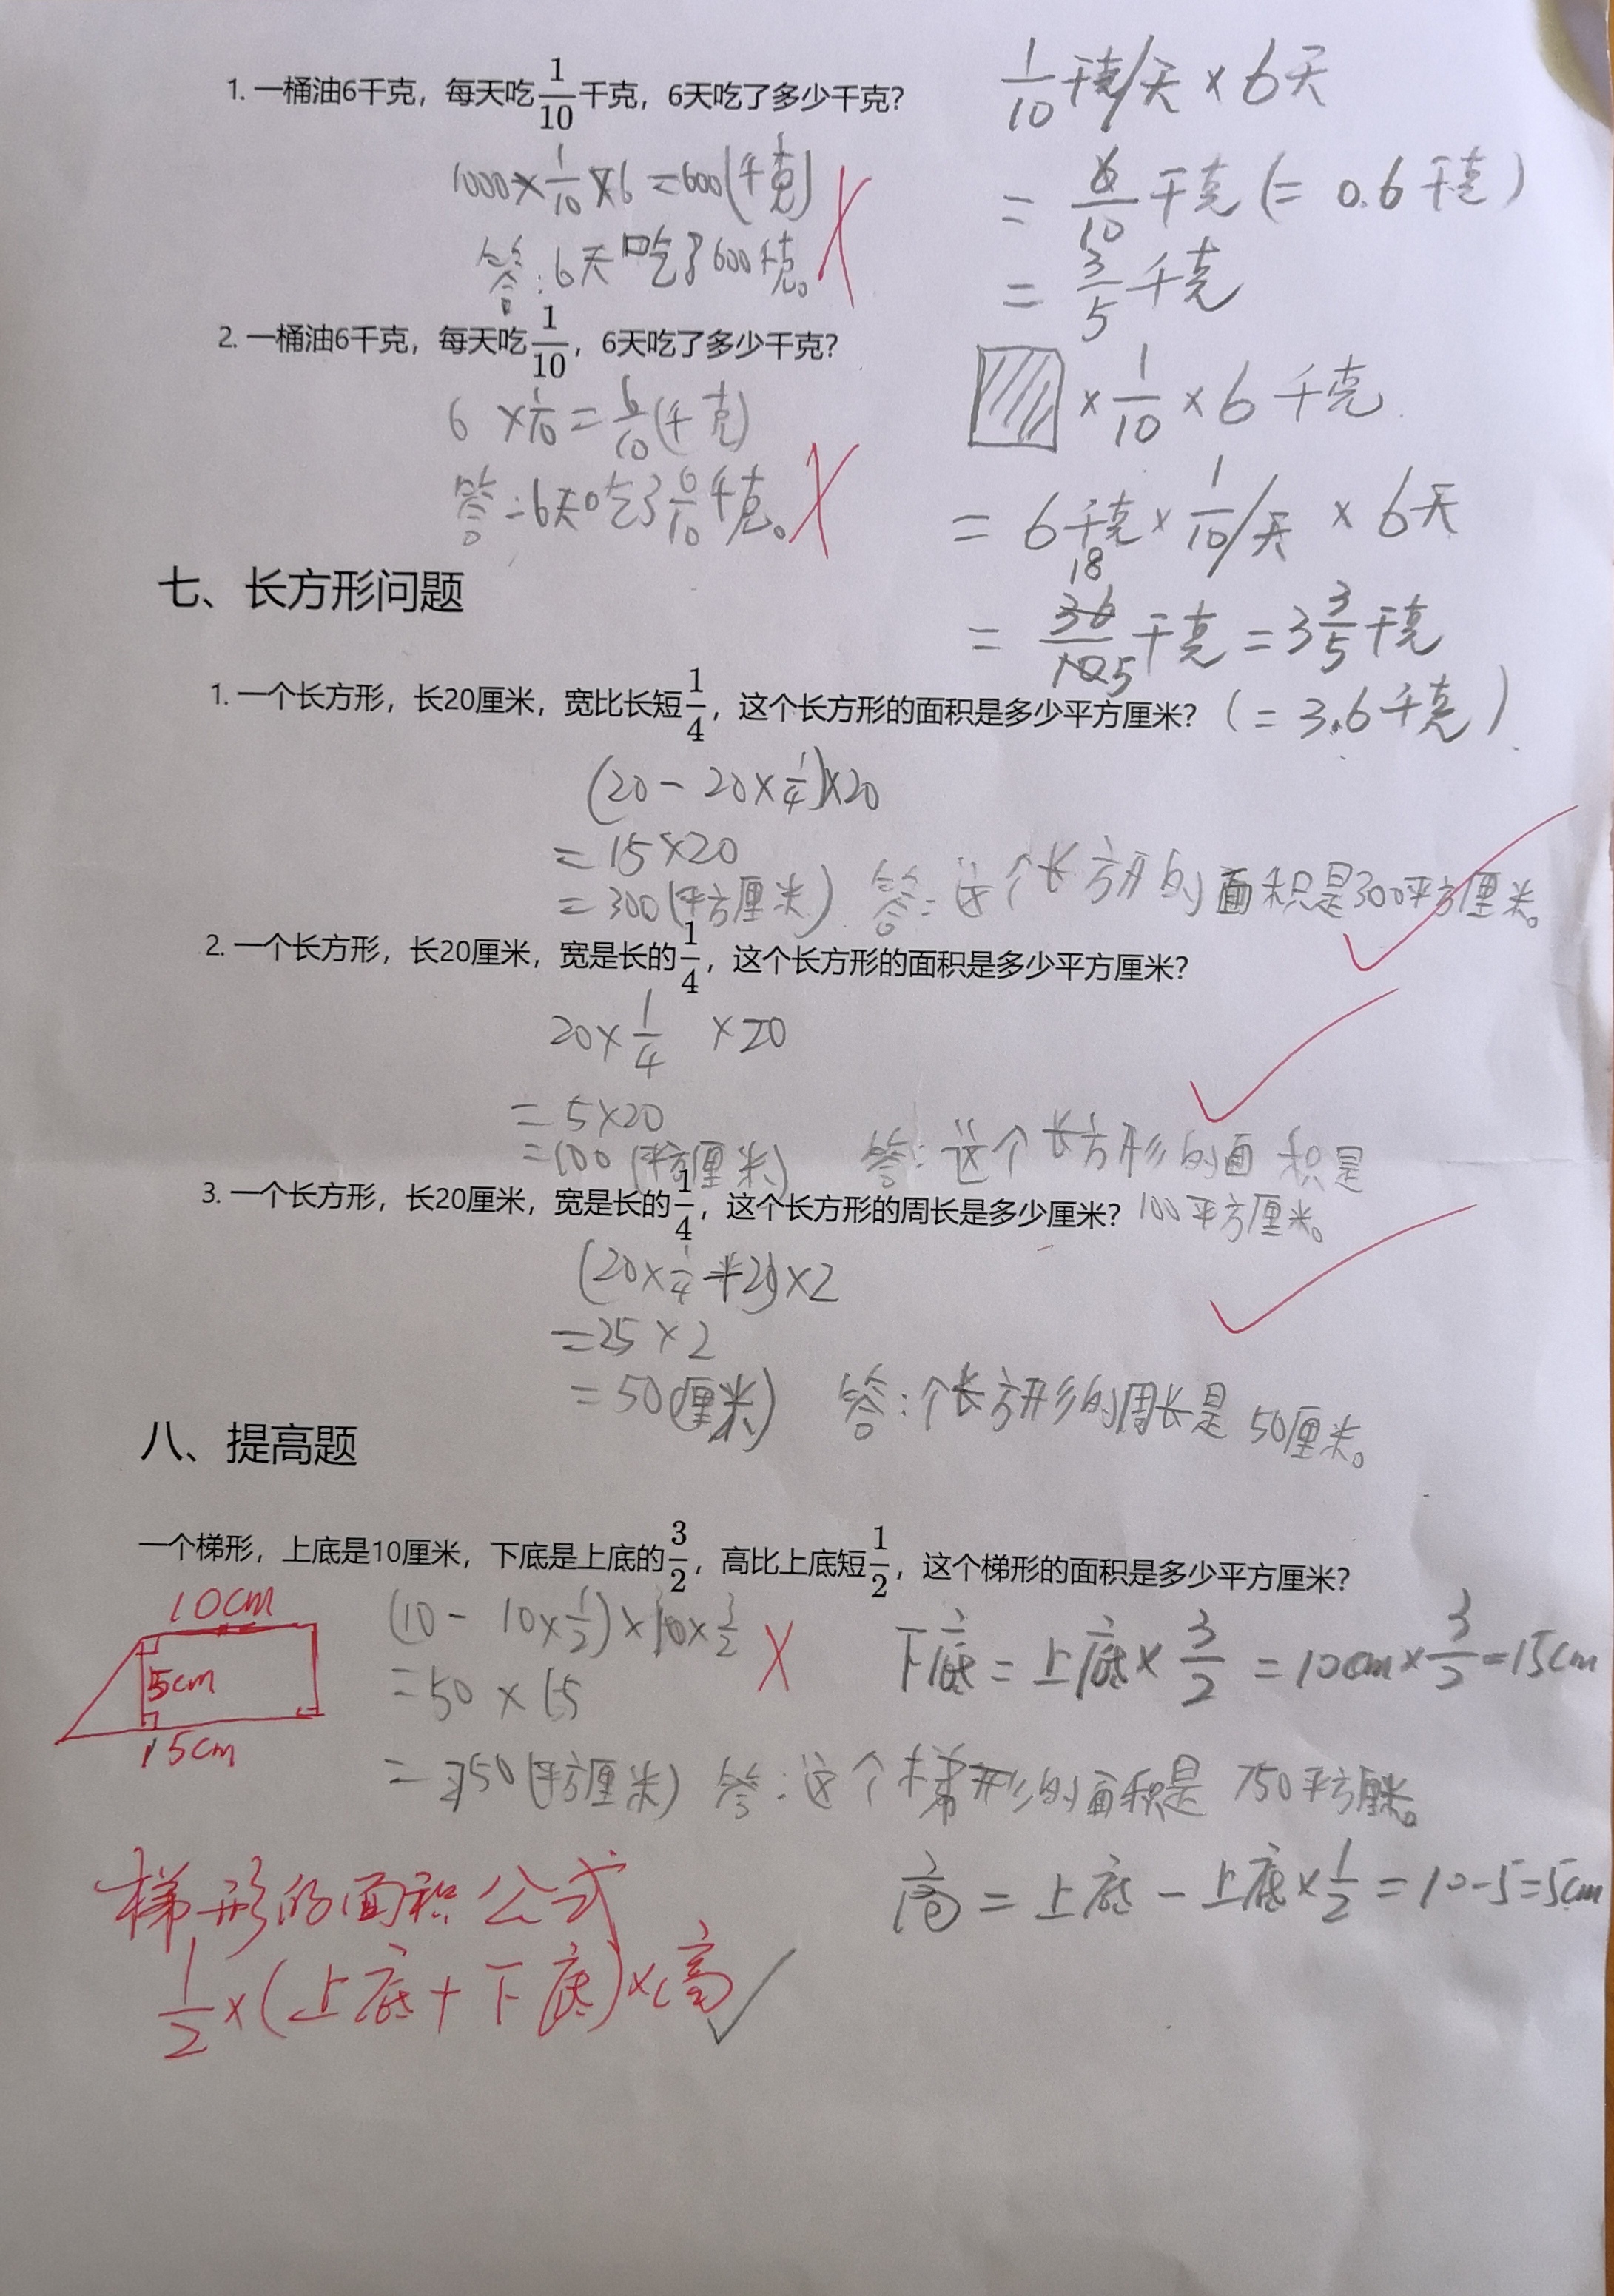 1. 一桶油6千克，每天吃1/10千克，6天吃了多少千克？
1/10千克/天 × 6天
1000×1/10×6=600(千克)
= 6/10千克(= 0.6千克)
答：6天吃了600千克。
= 3/5千克
2. 一桶油6千克，每天吃1/10，6天吃了多少千克？
× 1/10 × 6 千克
6 ×1/10 = 6/10(千克)
答：6天吃了6/10千克。
= 6千克 × 1/10/天 × 6天
七、长方形问题
18
= 36/10 5 千克 = 3 3/5千克
1. 一个长方形，长20厘米，宽比长短1/4，这个长方形的面积是多少平方厘米？
(= 3.6千克)
(20 - 20×1/4)×20
= 15×20
= 300(平方厘米) 答：这个长方形的面积是300平方厘米。
2. 一个长方形，长20厘米，宽是长的1/4，这个长方形的面积是多少平方厘米？
20×1/4 ×20
= 5×20
=100(平方厘米) 答：这个长方形的面积是
100平方厘米。
3. 一个长方形，长20厘米，宽是长的1/4，这个长方形的周长是多少厘米？
(20×1/4+20)×2
=25×2
= 50(厘米) 答：个长方形的周长是50厘米。
八、提高题
一个梯形，上底是10厘米，下底是上底的3/2，高比上底短1/2，这个梯形的面积是多少平方厘米？
10cm
5cm
15cm
(10 - 10×1/2)×10×3/2
=50 × 15
= 750(平方厘米) 答：这个梯形的面积是750平方厘米。
下底 = 上底× 3/2 = 10cm×3/2=15cm
高 = 上底 - 上底×1/2 = 10-5=5cm
梯形的面积公式
1/2×(上底+下底)×高